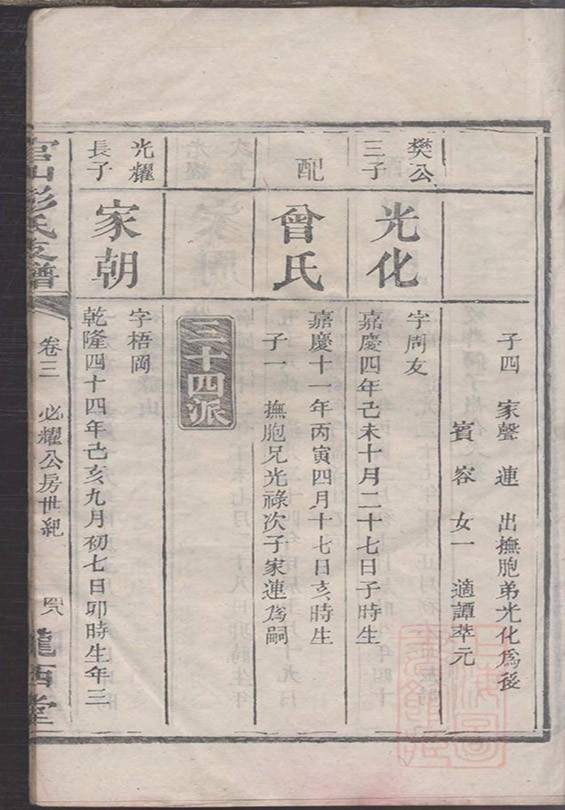 子四 家聲 連 出撫胞弟光化爲後
賓 容 女一 適譚萃元
樊公三子
光化
字周友
嘉慶四年己未十月二十七日子時生
配
曾氏
嘉慶十一年丙寅四月十七日亥時生
子一 撫胞兄光祿次子家連爲嗣
三十四派
光耀長子
家朝
字梧岡
乾隆四十四年己亥九月初七日卯時生年三
彭氏支譜
卷三
必耀公房世紀
隴西堂